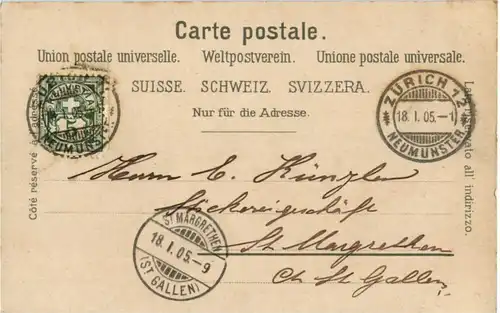 Carte postale.
Union postale universelle. Weltpostverein. Unione postale universale.
SUISSE. SCHWEIZ. SVIZZERA.
Nur für die Adresse.
Côté réservé à
all' indirizzo.
NEUMÜNSTER
ZÜRICH 12
18. I. 05.-1
NEUMÜNSTER
Herrn E. Künzler
St. Margrethen
Ct. St. Gallen
ST MARGRETHEN
18. I. 05.-9
(ST GALLEN)